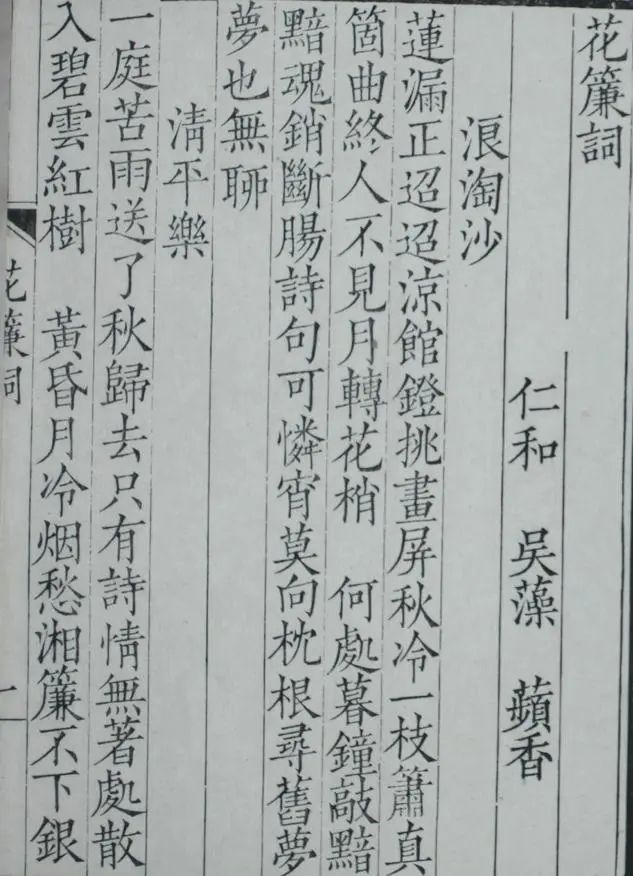 花簾詞
仁和 吴藻 蘋香
浪淘沙
蓮漏正迢迢涼館鐙挑畫屏秋冷一枝簫真
箇曲終人不見月轉花梢 何處暮鐘敲黯
黯魂銷斷腸詩句可憐宵莫向枕根尋舊夢
夢也無聊
清平樂
一庭苦雨送了秋歸去只有詩情無著處散
入碧雲紅樹 黃昏月冷烟愁湘簾不下銀
花簾詞
一